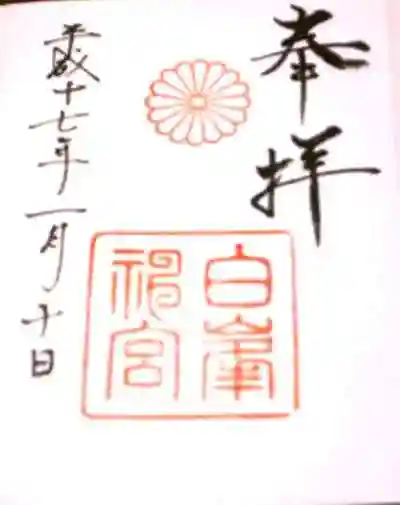 奉拝
白峯
神宮
平成十七年一月十日